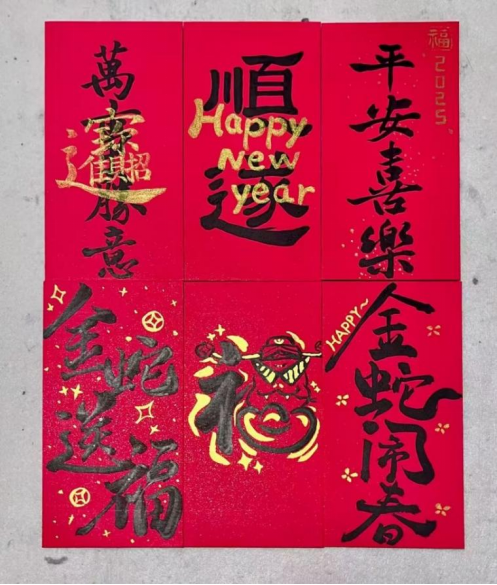 萬
勝意
招財進寶
順遂
Happy
New
year
福 2025
平安喜樂
金蛇
送福
福
HAPPY~
金蛇闹春